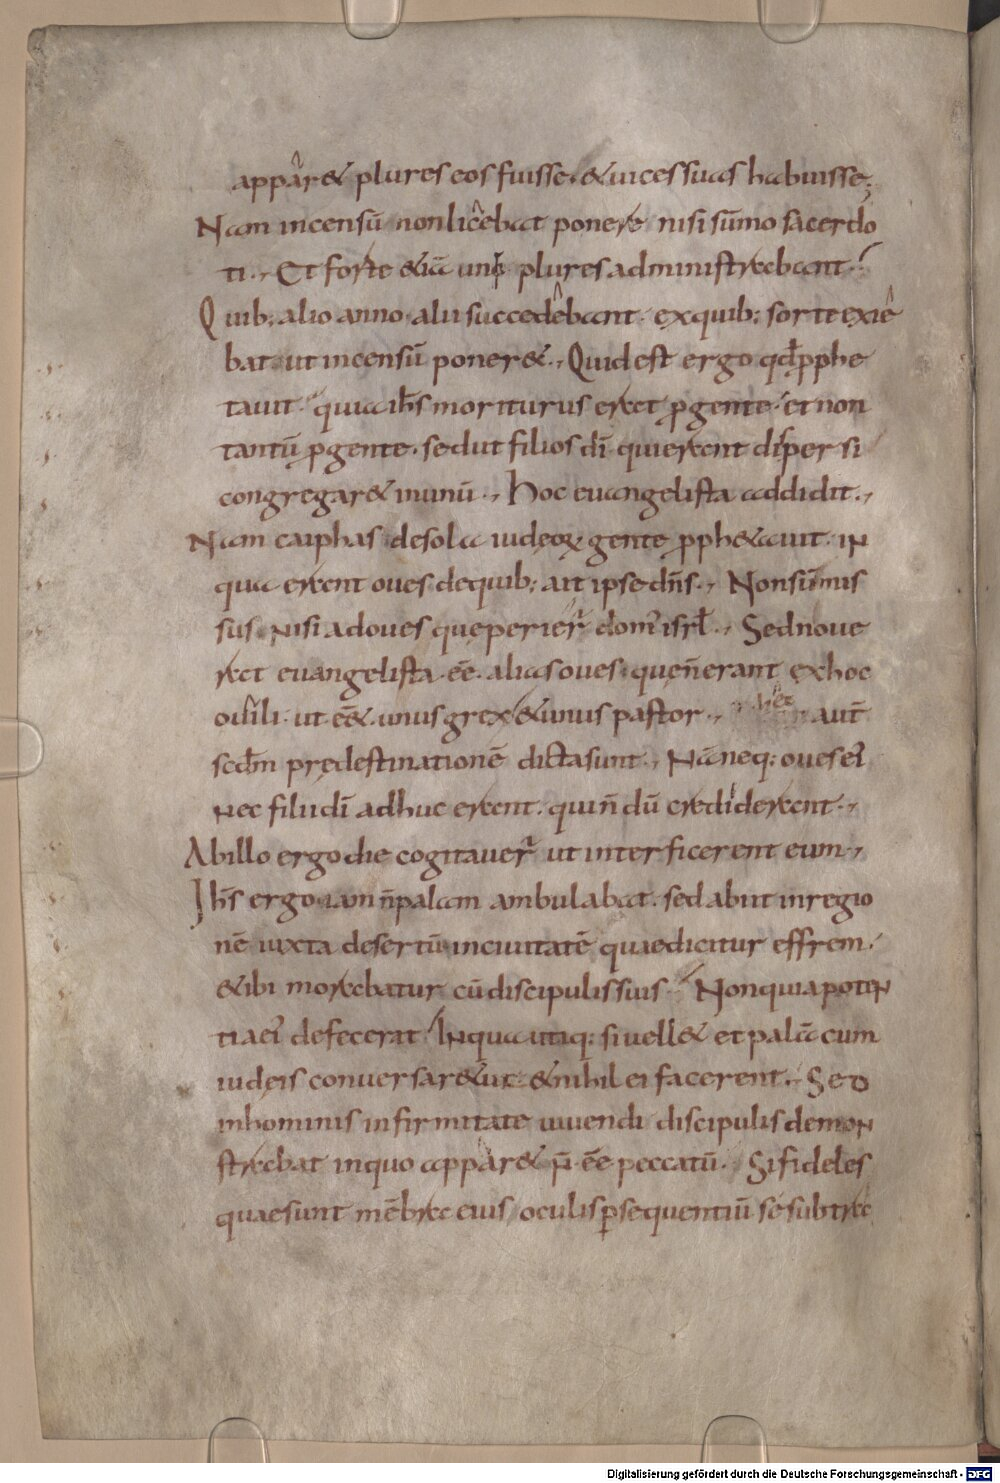 appar& plures eos fuisse. & uices suas habuisse;
Nam incensū non licebat ponere nisi sūmo sacerdo
ti., Et forte &iā unū plures administrabant.
Quib; alio anno alii succedebant. ex quib; sorte exie
bat ut incensū poner&., Quid est ergo qđ pphe
tauit. quia ih̄s moriturus erat p gente. et non
tantū p gente. sed ut filios dī qui erant dispersi
congregar& in unū., Hoc euangelista addidit.,
Nam caiphas de sola iudeoꝝ gente pph&auit. in
qua erant oues de quib; ait ipse dn̄s., Non sū mis
sus. nisi ad oues que perier̄ dom' isrl̄., Sed noue
rat euangelista. ēē. alias oues. que n̄ erant ex hoc
ouili. ut ēē&. unus grex & unus pastor., hec aut̄
scd̄m predestinationē dicta sunt., Nā neq; oues ei'
nec filii dī adhuc erant. qui n̄dū crediderant.,
Ab illo ergo die cogitauer̄ ut interficerent eum.,
Ih̄s ergo iam n̄ palam ambulabat. sed abiit in regio
nē iuxta desertū in ciuitatē quae dicitur effrem.
& ibi morabatur cū discipulis suis. Non quia poten
tia ei' defecerat In qua utiq; si uell& et palā cum
iudeis conuersar&ur & nihil ei facerent., Sed
in hominis infirmitate uiuendi discipulis demon
strabat in quo appar& n̄. ēē peccatū. Si fideles
quae sunt mēbra eius oculis psequentiū se subtra
Digitalisierung gefördert durch die Deutsche Forschungsgemeinschaft - DFG